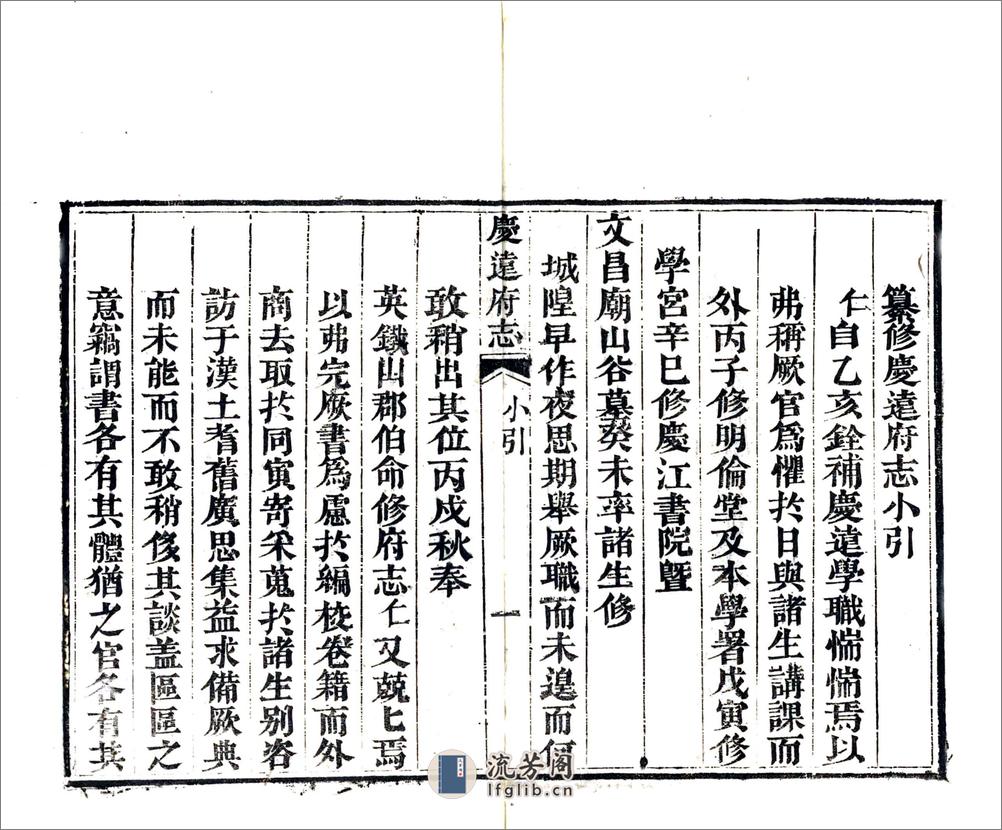 纂修慶遠府志小引
仁自乙亥銓補慶遠學職惴惴焉以
弗稱厥官爲懼扵日與諸生講課而
外丙子修明倫堂及本學署戊寅修
學宮辛巳修慶江書院曁
文昌廟山谷墓癸未率諸生修
城隍早作夜思期舉厥職而未遑而何
慶遠府志 小引 一
敢稍出其位丙戍秋奉
英鐵山郡伯命修府志仁又兢匕焉
以弗完厥書爲慮扵編校卷籍而外
商去取扵同寅寄采蒐扵諸生别咨
訪于漢土耆舊廣思集益求備厥典
而未能而不敢稍侈其談盖區區之
意竊謂書各有其體猶之官各有其
流芳阁
lfglib.cn